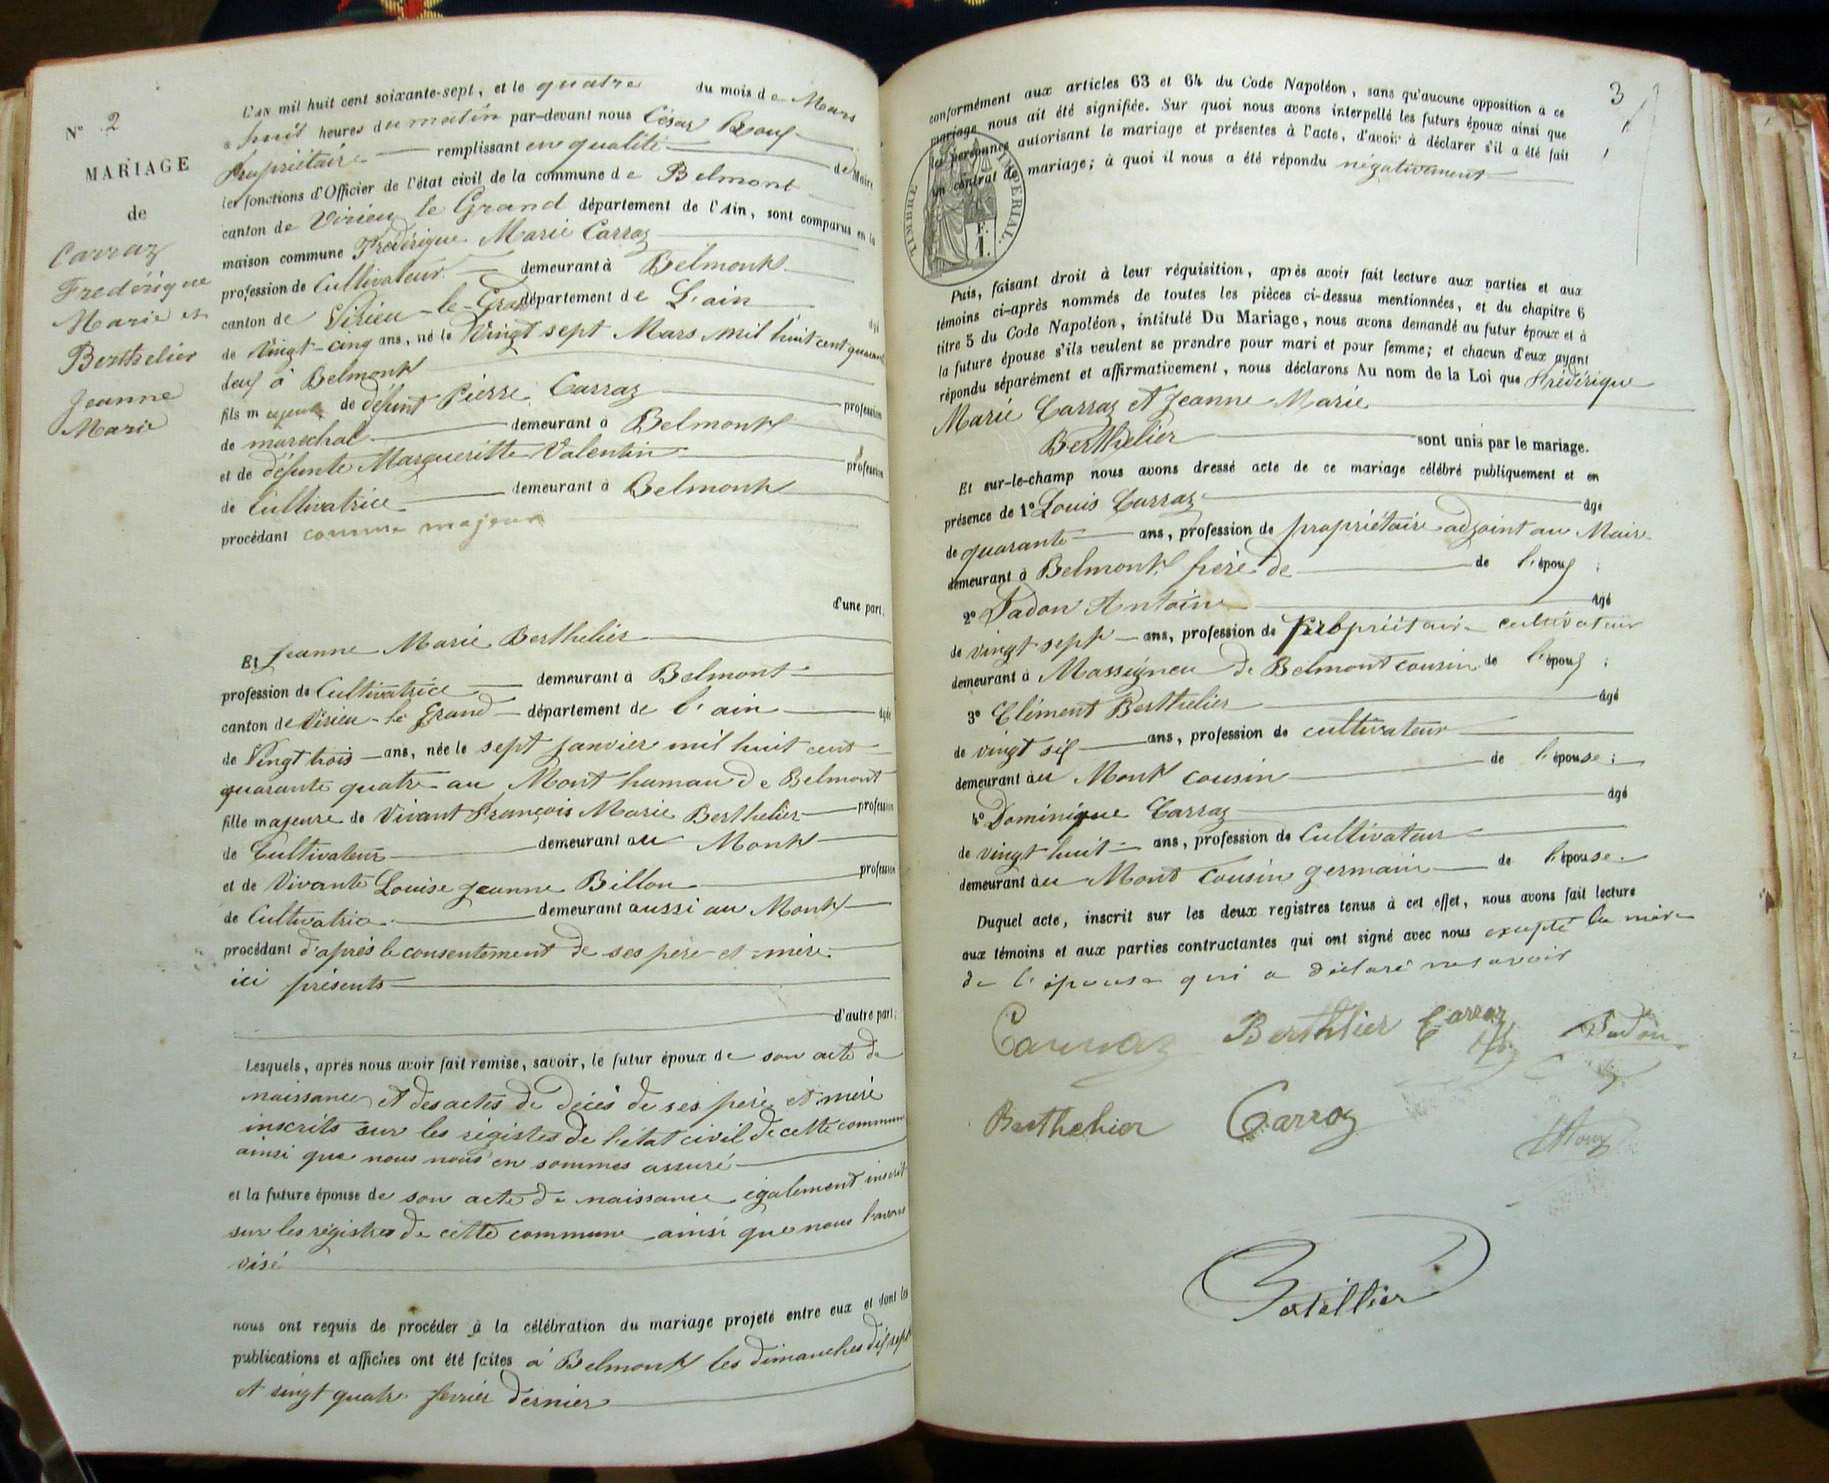 N° 2
MARIAGE
de
Carraz
Frédérique
Marie et
Berthelier
Jeanne
Marie
L'an mil huit cent soixante-sept, et le quatre du mois de Mars
à huit heures du matin par-devant nous César
propriétaire remplissant en qualité de Maire
les fonctions d'Officier de l'état civil de la commune de Belmont
canton de Virieu le Grand département de l'Ain, sont comparus en la
maison commune Frédérique Marie Carraz
profession de Cultivateur demeurant à Belmont
canton de Virieu-le-Grand département de L'ain âgé
de Vingt-cinq ans, né le Vingt sept Mars mil huit cent quarante
deux à Belmont
fils majeur de défunt Pierre Carraz profession
de maréchal demeurant à Belmont
et de défunte Margueritte Valentin profession
de Cultivatrice demeurant à Belmont
procédant comme majeur
d'une part;
Et Jeanne Marie Berthelier
profession de Cultivatrice demeurant à Belmont
canton de Virieu-le Grand département de l'ain âgée
de Vingt trois ans, née le sept Janvier mil huit cent
quarante quatre au Mont hameau de Belmont
fille majeure de Vivant François Marie Berthelier profession
de Cultivateur demeurant au Mont
et de Vivante Louise Jeanne Billon profession
de Cultivatrice demeurant aussi au Mont
procédant d'après le consentement de ses père et mère
ici présents
d'autre part;
Lesquels, après nous avoir fait remise, savoir, le futur époux de son acte de
naissance et des actes de décès de ses père et mère
inscrits sur les régistes de l'état civil de cette commune
ainsi que nous nous en sommes assuré
et la future épouse de son acte de naissance également inscrit
sur les régistres de cette commune ainsi que nous l'avons
visé
nous ont requis de procéder à la célébration du mariage projeté entre eux et dont les
publications et affiches ont été faites à Belmont les dimanches dix sept
et vingt quatre fevrier dernier
3
conformément aux articles 63 et 64 du Code Napoléon, sans qu'aucune opposition à ce
mariage nous ait été signifiée. Sur quoi nous avons interpellé les futurs époux ainsi que
les personnes autorisant le mariage et présentes à l'acte, d'avoir à déclarer s'il a été fait
un contrat de mariage; à quoi il nous a été répondu négativement
TIMBRE IMPERIAL.
F.
1.
Puis, faisant droit à leur réquisition, après avoir fait lecture aux parties et aux
témoins ci-après nommés de toutes les pièces ci-dessus mentionnées, et du chapitre 6
titre 5 du Code Napoléon, intitulé Du Mariage, nous avons demandé au futur époux et à
la future épouse s'ils veulent se prendre pour mari et pour femme; et chacun d'eux ayant
répondu séparément et affirmativement, nous déclarons Au nom de la Loi que Frédérique
Marie Carraz et Jeanne Marie
Berthelier sont unis par le mariage.
Et sur-le-champ nous avons dressé acte de ce mariage célébré publiquement et en
présence de 1° Louis Carraz âgé
de quarante ans, profession de propriétaire adjoint au Maire
demeurant à Belmont frère de de l'époux;
2° Tadon Antoine âgé
de vingt sept ans, profession de propriétaire cultivateur
demeurant à Massigneu de Belmont cousin de l'époux;
3° Clément Berthelier âgé
de vingt six ans, profession de cultivateur
demeurant au Mont cousin de l'épouse;
4° Dominique Carraz âgé
de vingt huit ans, profession de Cultivateur
demeurant au Mont Cousin germain de l'épouse.
Duquel acte, inscrit sur les deux registres tenus à cet effet, nous avons fait lecture
aux témoins et aux parties contractantes qui ont signé avec nous excepté la mère
de l'épouse qui a déclaré ne savoir
Carraz Berthlier Carraz Tadon
Berthelier Carraz